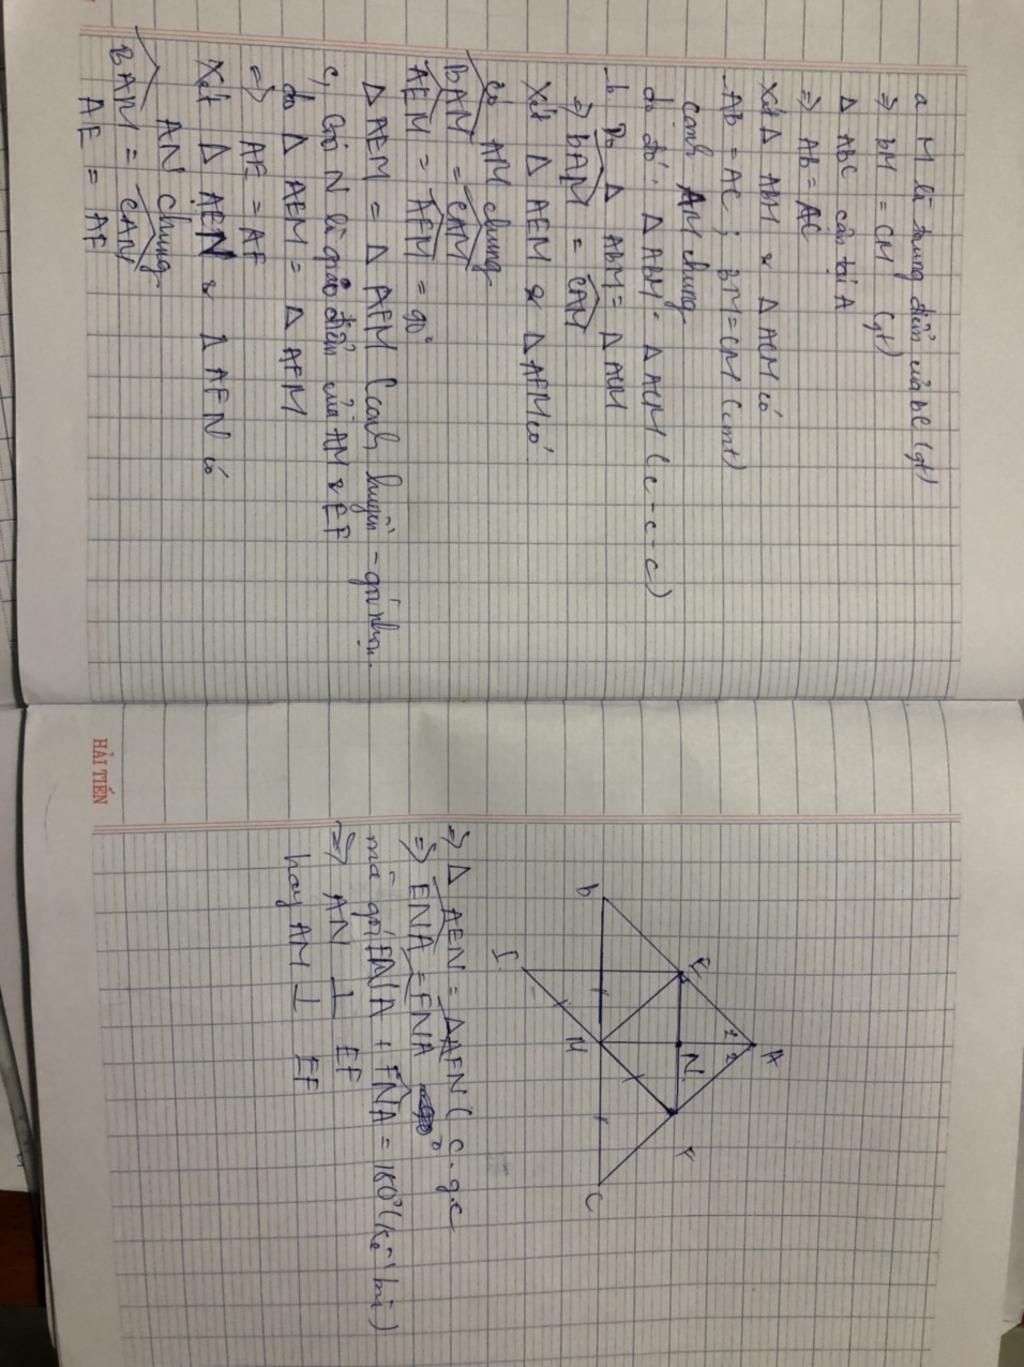 a M là trung điểm của BC (gt)
=> BM = CM (gt)
Δ ABC cân tại A
=> AB = AC
Xét Δ ABM & Δ ACM có
AB = AC ; BM = CM (cmt)
cạnh AM chung
do đó: Δ ABM = Δ ACM (c-c-c)
b, Do Δ ABM = Δ ACM
=> BAM = CAM
Xét Δ AEM & Δ AFM có
có AM chung
BAM = CAM
AEM = AFM = 90°
Δ AEM = Δ AFM (cạnh huyền - góc nhọn.
c, Gọi N là giao điểm của AM & EF
do Δ AEM = Δ AFM
=> AE = AF
Xét Δ AEN & Δ AFN có
AN chung
BAM = CAN
AE = AF
HẢI TIẾN
A
1 2
E
N
F
B
M
C
I
=> Δ AEN = ΔAFN ( c.g.c
=> ENA = FNA
mà góc ENA + FNA = 180° (kề bù)
=> AN ⊥ EF
hay AM ⊥ EF